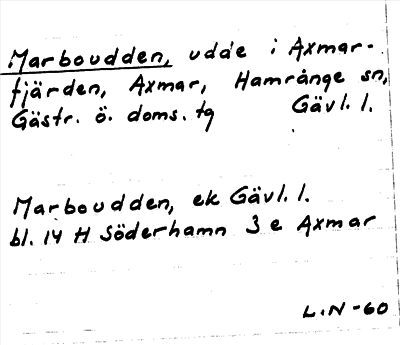 Marboudden, udde i Axmar-
fjärden, Axmar, Hamrånge sn,
Gästr. ö. doms. tg Gävl. l.
Marboudden, ek Gävl. l.
bl. 14 H Söderhamn 3 e Axmar
L.N-60